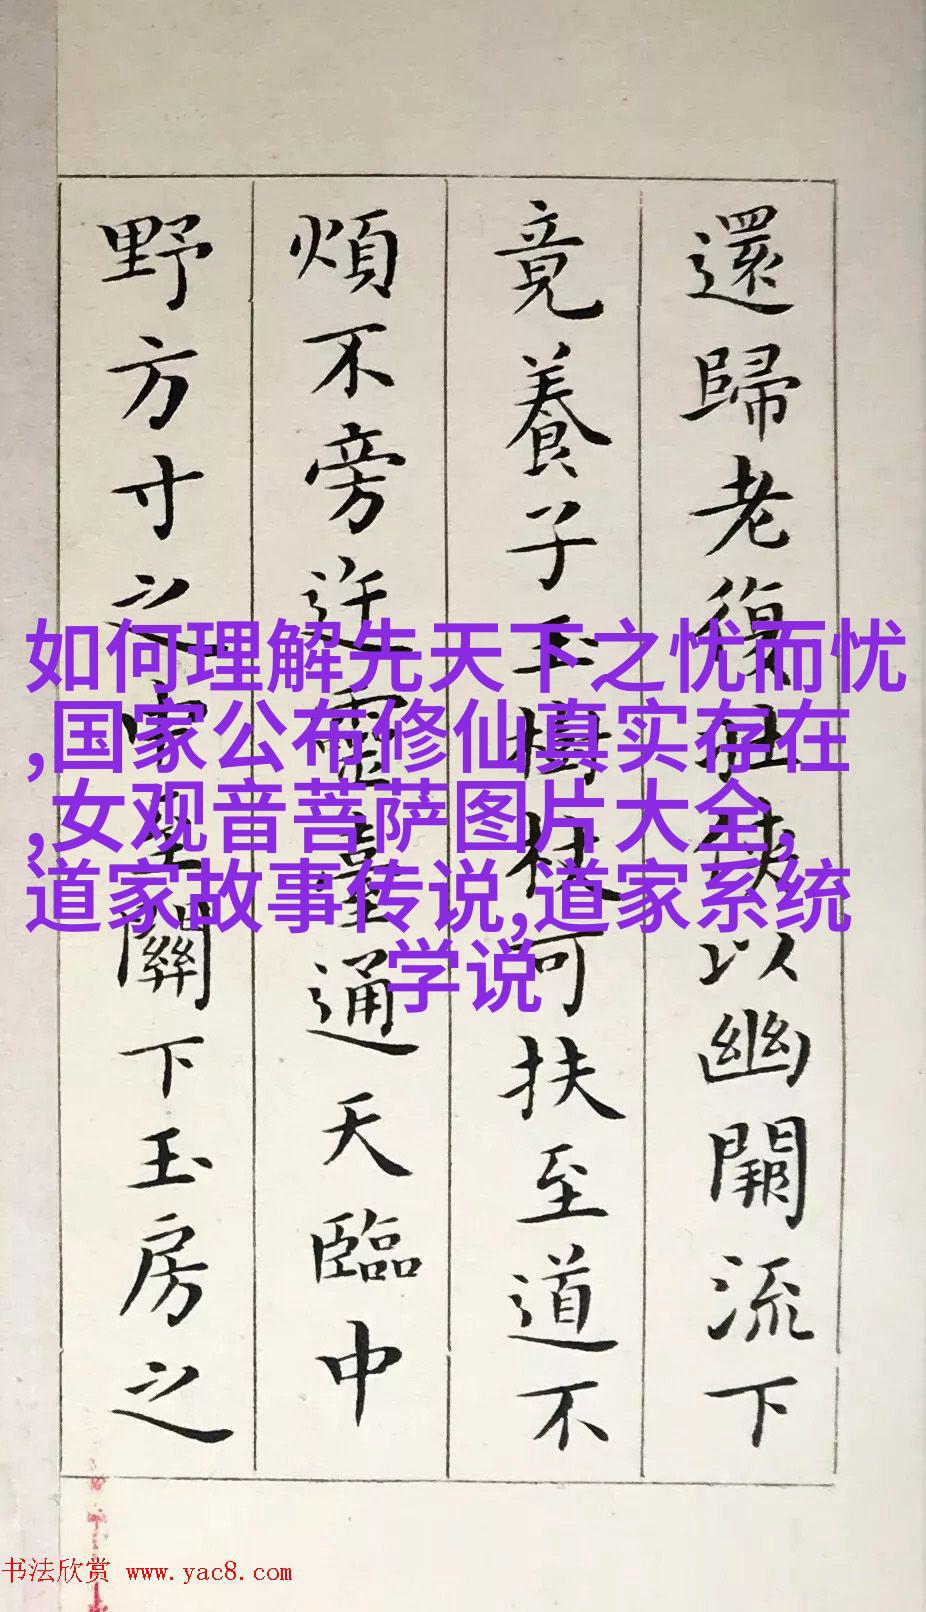 還歸老復壯俠以幽闕流下
竟養子玉樹杖可扶至道不
煩不旁迕靈臺通天臨中
野方寸之中至關下玉房之
如何理解先天下之忧而忧
,国家公布修仙真实存在
,女观音菩萨图片大全,
道家故事传说,道家系统
学说
书法欣赏 www.yac8.com